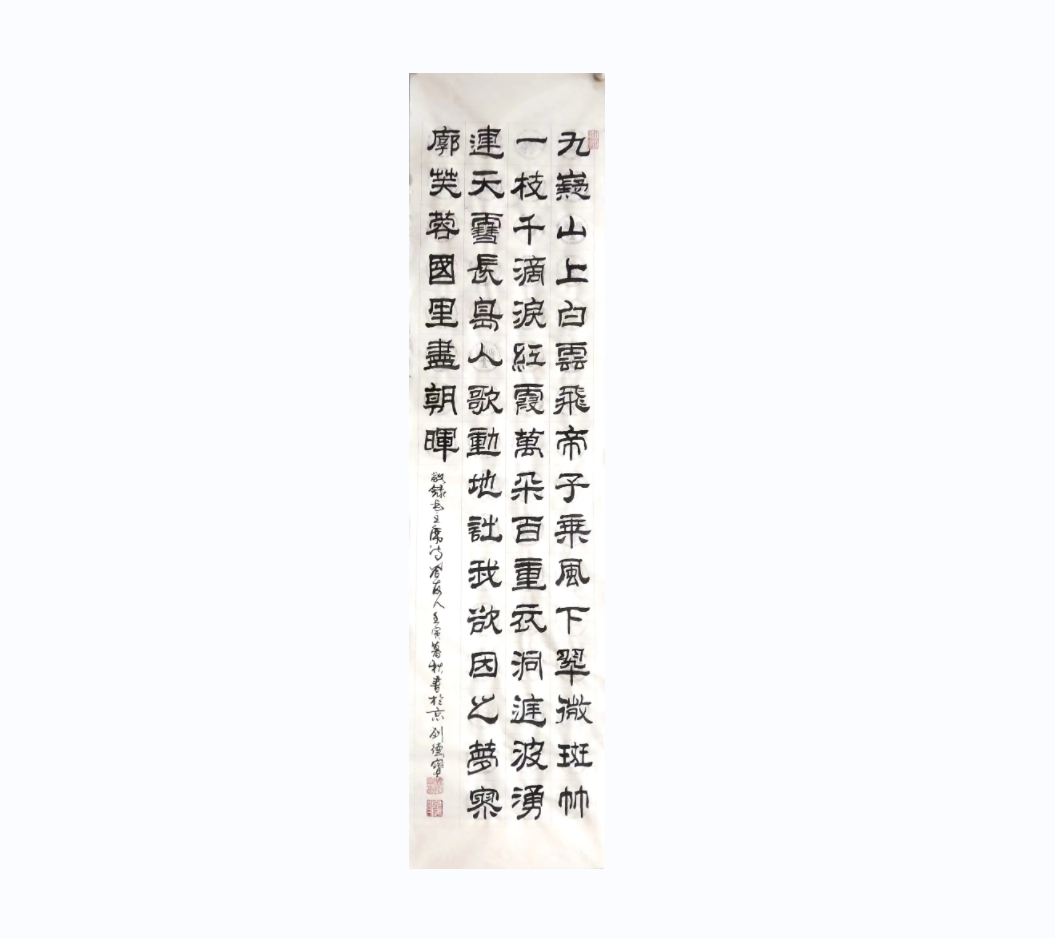 九嶷山上白雲飛帝子乘風下翠微斑竹
一枝千滴淚紅霞萬朵百重衣洞庭波湧
連天雪長島人歌動地詩我欲因之夢寥
廓芙蓉國里盡朝暉
敬録毛主席诗答友人壬寅暮秋書於京刘德